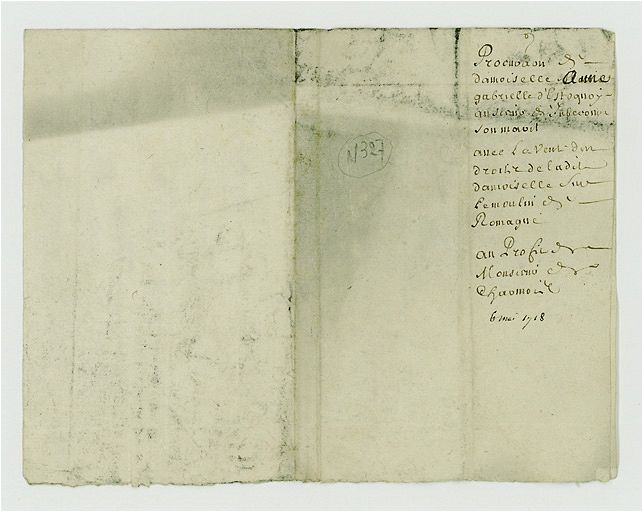 Procuration de
damoiselle Anne
gabrielle d'Estoquoy
au sieur de
son mary
avec la vente du
droict de ladite
damoiselle sur
le moulin de
Romagne
au Profit de
Monsieur de
6 mai 1718
N327